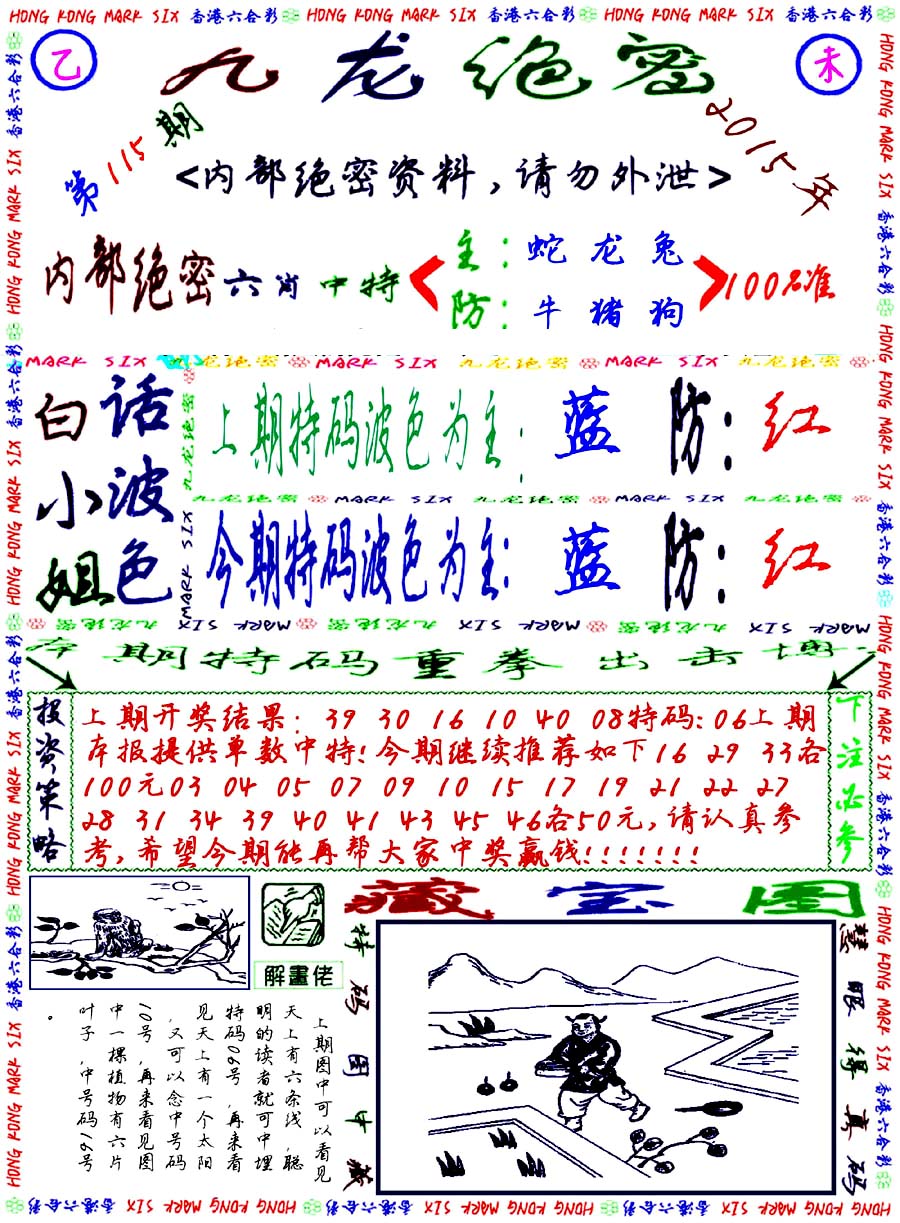 HONG KONG MARK SIX 香港六合彩 HONG KONG MARK SIX 香港六合彩 HONG KONG MARK SIX 香港六合彩
乙 九龙绝密 未
第115期 2015年
<内部绝密资料,请勿外泄>
内部绝密六肖中特
主:蛇龙兔
防:牛猪狗
100%准
MARK SIX 九龙绝密 MARK SIX 九龙绝密 MARK SIX 九龙绝密
白小姐
话波色
上期特码波色为主: 蓝 防: 红
九龙绝密 MARK SIX 九龙绝密 MARK SIX 九龙绝密
今期特码波色为主: 蓝 防: 红
九龙绝密 MARK SIX 九龙绝密 MARK SIX 九龙绝密 MARK SIX
本期特码重拳出击博
投资策略
上期开奖结果: 39 30 16 10 40 08特码:06上期
本报提供单数中特!今期继续推荐如下16 29 33各
100元03 04 05 07 09 10 15 17 19 21 22 27
28 31 34 39 40 41 43 45 46各50元,请认真参
考,希望今期能再帮大家中奖赢钱!!!!!!!
下注必参
藏宝图
解畫佬
特码图中藏
慧眼得真码
上期图中可以看见
天上有六条线,聪
明的读者就可中埋
特码06号,再来看
见天上有一个太阳
,又可以念中号码
10号,再来看见图
中一棵植物有六片
叶子,中号码16号
。
HONG KONG MARK SIX 香港六合彩 HONG KONG MARK SIX 香港六合彩 HONG KONG MARK SIX 香港六合彩